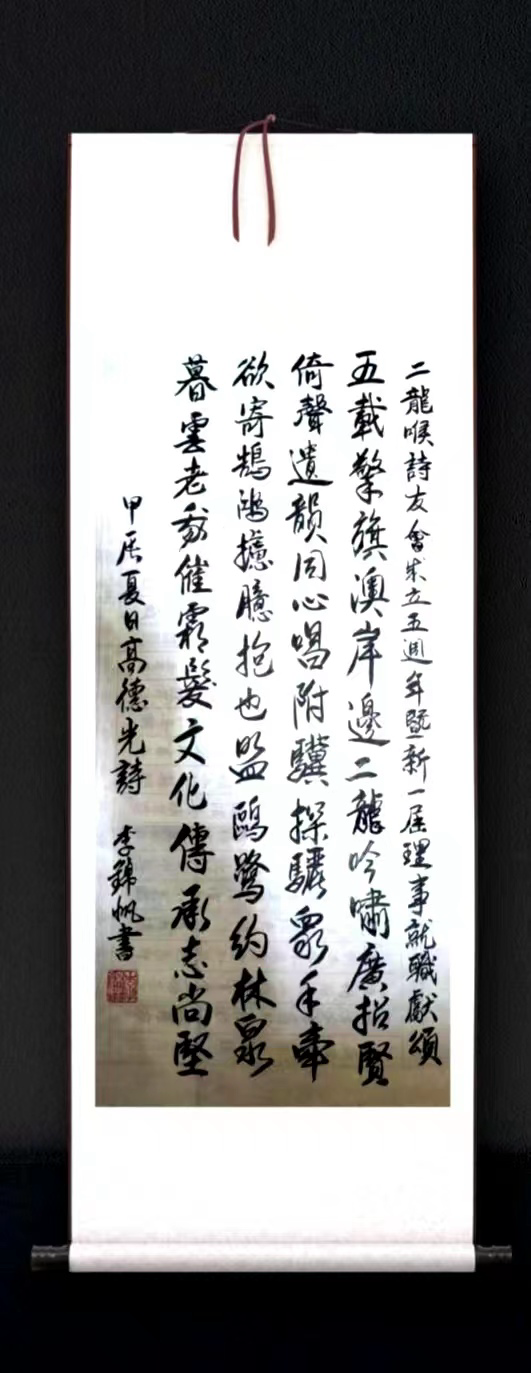 二龍喉詩友會成立五週年暨新一屆理事就職獻頌
五載擎旗澳岸邊二龍吟嘯廣招賢
倚聲遺韻同心唱附驥探驪眾手牽
欲寄鵠鴻攄臆抱也盟鷗鷺約林泉
暮雲老我催霜髮文化傳承志尚堅
甲辰夏日高德光詩 李錦帆書